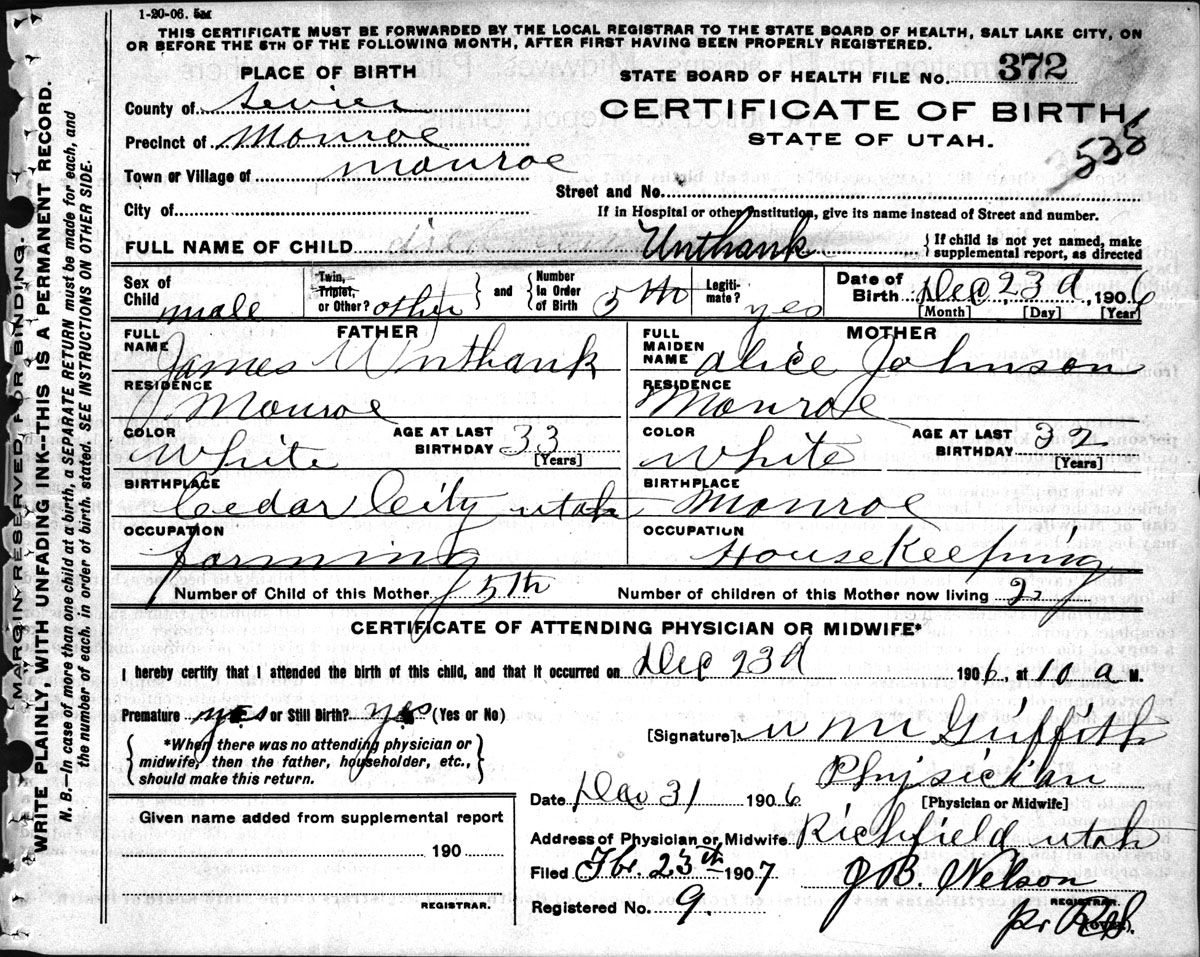 1-20-06. 5M
THIS CERTIFICATE MUST BE FORWARDED BY THE LOCAL REGISTRAR TO THE STATE BOARD OF HEALTH, SALT LAKE CITY, ON
OR BEFORE THE 5TH OF THE FOLLOWING MONTH, AFTER FIRST HAVING BEEN PROPERLY REGISTERED.
PLACE OF BIRTH
STATE BOARD OF HEALTH FILE NO. 372
County of Sevier
CERTIFICATE OF BIRTH
Precinct of Monroe
STATE OF UTAH.
535
Town or Village of Monroe
Street and No.
City of
If in Hospital or other institution, give its name instead of Street and number.
FULL NAME OF CHILD Unthank { If child is not yet named, make supplemental report, as directed
Sex of Child male Twin, Triplet, or Other? other } and { Number in Order of Birth 5th Legiti-mate? yes Date of Birth Dec 23d, 1906
[Month] [Day] [Year]
FATHER
MOTHER
FULL NAME James Unthank
FULL MAIDEN NAME Alice Johnson
RESIDENCE Monroe
RESIDENCE Monroe
COLOR White AGE AT LAST BIRTHDAY 33 [Years]
COLOR White AGE AT LAST BIRTHDAY 32 [Years]
BIRTHPLACE Cedar City Utah
BIRTHPLACE Monroe
OCCUPATION farming
OCCUPATION HouseKeeping
Number of Child of this Mother 5th Number of children of this Mother now living 2
CERTIFICATE OF ATTENDING PHYSICIAN OR MIDWIFE*
I hereby certify that I attended the birth of this child, and that it occurred on Dec 23d 1906, at 10 a M.
Premature yes or Still Birth? yes (Yes or No)
{ *When there was no attending physician or
midwife, then the father, householder, etc.,
should make this return. }
[Signature] W M Griffith
Physician
[Physician or Midwife]
Date Dec 31 1906
Given name added from supplemental report
190
REGISTRAR.
Address of Physician or Midwife Richfield Utah
Filed Fbr. 23th 1907 J B. Nelson
REGISTRAR.
Registered No. 9.
MARGIN RESERVED FOR BINDING.
WRITE PLAINLY, WITH UNFADING INK--THIS IS A PERMANENT RECORD.
N. B.—In case of more than one child at a birth, a SEPARATE RETURN must be made for each, and
the number of each, in order of birth, stated. SEE INSTRUCTIONS ON OTHER SIDE.